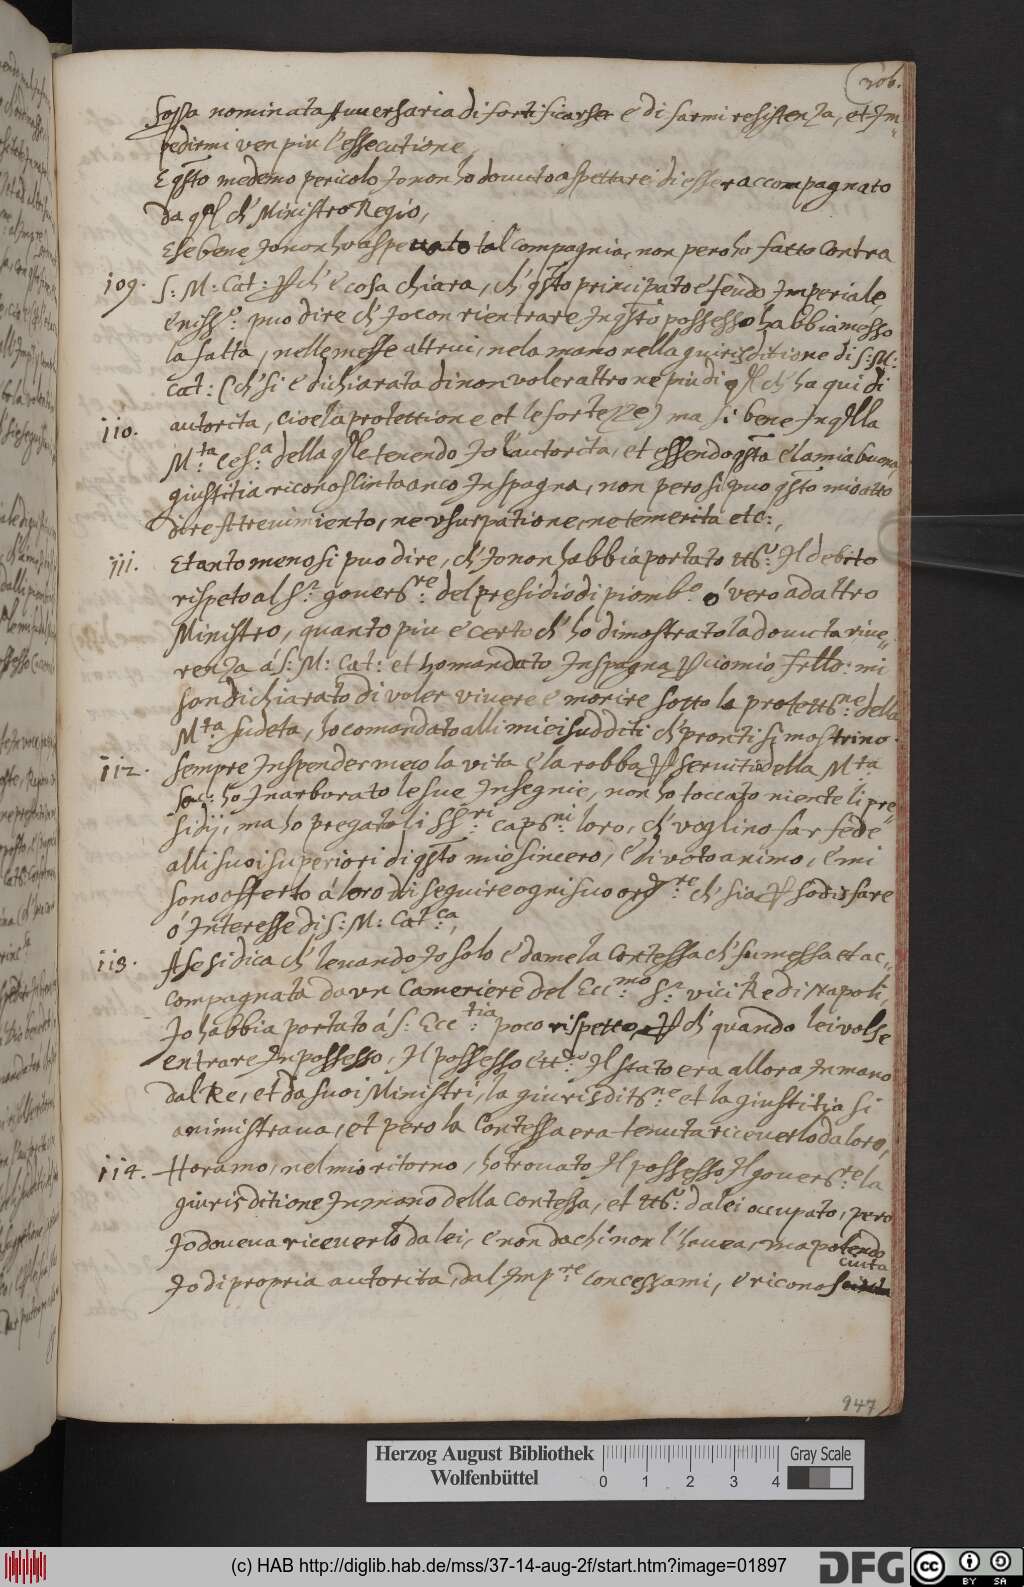 206.
sopra nominata Avversaria di fortificarsi e di farmi resistenza, et Im=
pedirmi ven piu l'essecutione,
E qsto medemo pericolo Jo non ho dovuto aspettare di esser accompagnato
da qal ch' Ministro Regio,
E se bene Jo non ho aspettato tal compagnia, non pero ho fatto contra
109. S: M: Cat: P ch' e cosa chiara, ch' qsto principato e feudo Imperiale
e niss.o puo dire ch' Jo con rientrare In qsto possesso habbia messo
la falta, nelle messe altrui, ne la mano nella giurisditione di S: M:
Cat: (ch' si e dichiarata di non voler altro ne piu di ql ch' ha qui di
110. autorita, cioe la protettione et le fortezze) ma si bene In qlla
M.ta Ces.a della qle tenendo Jo l'autorita, et essendo qsta e la mia buona
giustitia riconoscinta anco In spagna, non pero si puo qsto mio atto
dire attrevimiento, ne usurpatione, ne temerita etc:,
111. Et anto meno si puo dire, ch' Jo non habbia portato Il debito
rispeto al S.r govers.re del presidio di piomb.o ó vero ad altro
Ministro, quanto piu e certo ch' ho dimostrato la dovuta rive=
renza á S: M: Cat: et ho mandato In spagna P cio mio frllo: mi
son dichiarato di voler vivere e morire sotto la protetts.ne della
M.ta sudeta, ho comandato alli miei sudditi ch' pronti si mostrino
112. sempre In spender meco la vita e la robba P servitio della M.ta
sua: ho Inarborato le sue Insegnie, non ho toccato niente li pre=
sidij, ma ho pregato li SS.ri caps.ni loro, ch' voglino far fede
alli suoi superiori di qsto mio sincero, e divoto animo, e mi
sono offerto á loro di seguire ogni suo ord.re ch' sia P sodisfare
ó Interesse di S: M: Cat.ca,
113. A se si dica ch' levando Jo solo e da me la Contessa ch' fu messa et ac=
compagnata da un Cameriere del Ecc.mo S.r vici Re di Napoli,
Jo habbia portato á S: Ecc.tia poco rispetto, P ch' quando lei volse
entrare In possesso, Il possesso et Il stato era allora In mano
dal Re, et da suoi Ministri, la giurisdits.ne et la giustitia si
animistrava, et pero la Contessa era tenuta riceverlo da loro,
114. Hora mo, nel mio ritorno, ho trovato Il possesso Il govers.re la
giurisditione In mano della Contessa, et da lei occupato, pero
Jo doveva riceverlo da lei, e non da chi non l'haveva, ma potendo
Jo di propria autorita, dal Imp.re concessami, e riconoscinta
947
Herzog August Bibliothek
Wolfenbüttel
0 1 2 3 4
Gray Scale
(c) HAB http://diglib.hab.de/mss/37-14-aug-2f/start.htm?image=01897
DFG
cc BY SA